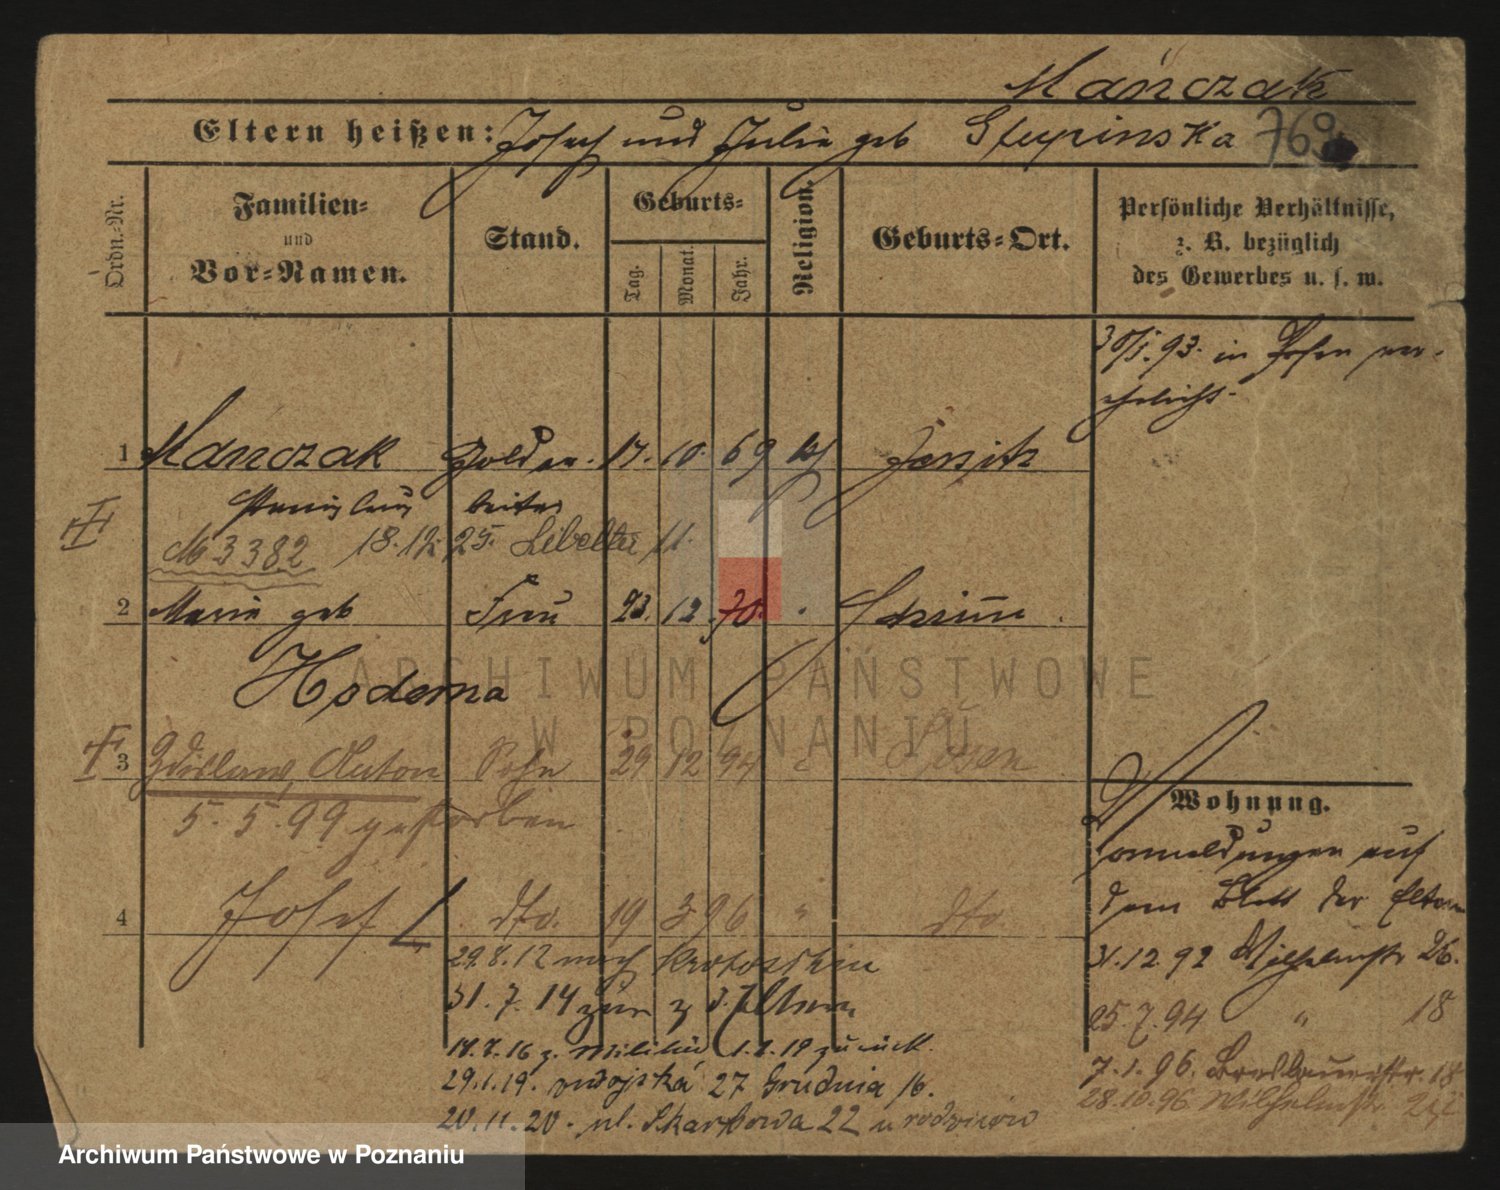 Mańczak
Eltern heißen: Josef und Julie geb Stupinska 769
Ordn.-Nr.
Familien- und Vor-Namen.
Stand.
Geburts-
Tag. Monat. Jahr.
Religion.
Geburts-Ort.
Persönliche Verhältnisse, z. B. bezüglich des Gewerbes u. s. w.
30/1. 93. in Posen ver-
ehelicht.
1 Mańczak 17. 10. 69 Jersitz
Stanislaus beiter
№ 3382 18.12.25. Libelta 11.
2 Marie geb Frau 23. 12. 70. Schrimm
Hoderna
3 Anton Sohn 29 12 94 Posen
5. 5. 99 gestorben
4 Josef dto. 19 3 96 " dto.
29.8.12 nach Krotoschin
31. 7. 14 zur z. d. Eltern
17.7.16 z. Militär 1.2.19 zurück.
29.1.19. 27 Grudnia 16.
20.11.20. ul. Skarbowa 22 u rodziców
Wohnung.
Anmeldungen auf
dem Blatt der Eltern
31.12.92 Wilhelmstr 26.
25.7.94 " 18
7.1.96. Breslauerstr. 18
28.10.96 Wilhelmstr.
ARCHIWUM PAŃSTWOWE
W POZNANIU
Archiwum Państwowe w Poznaniu